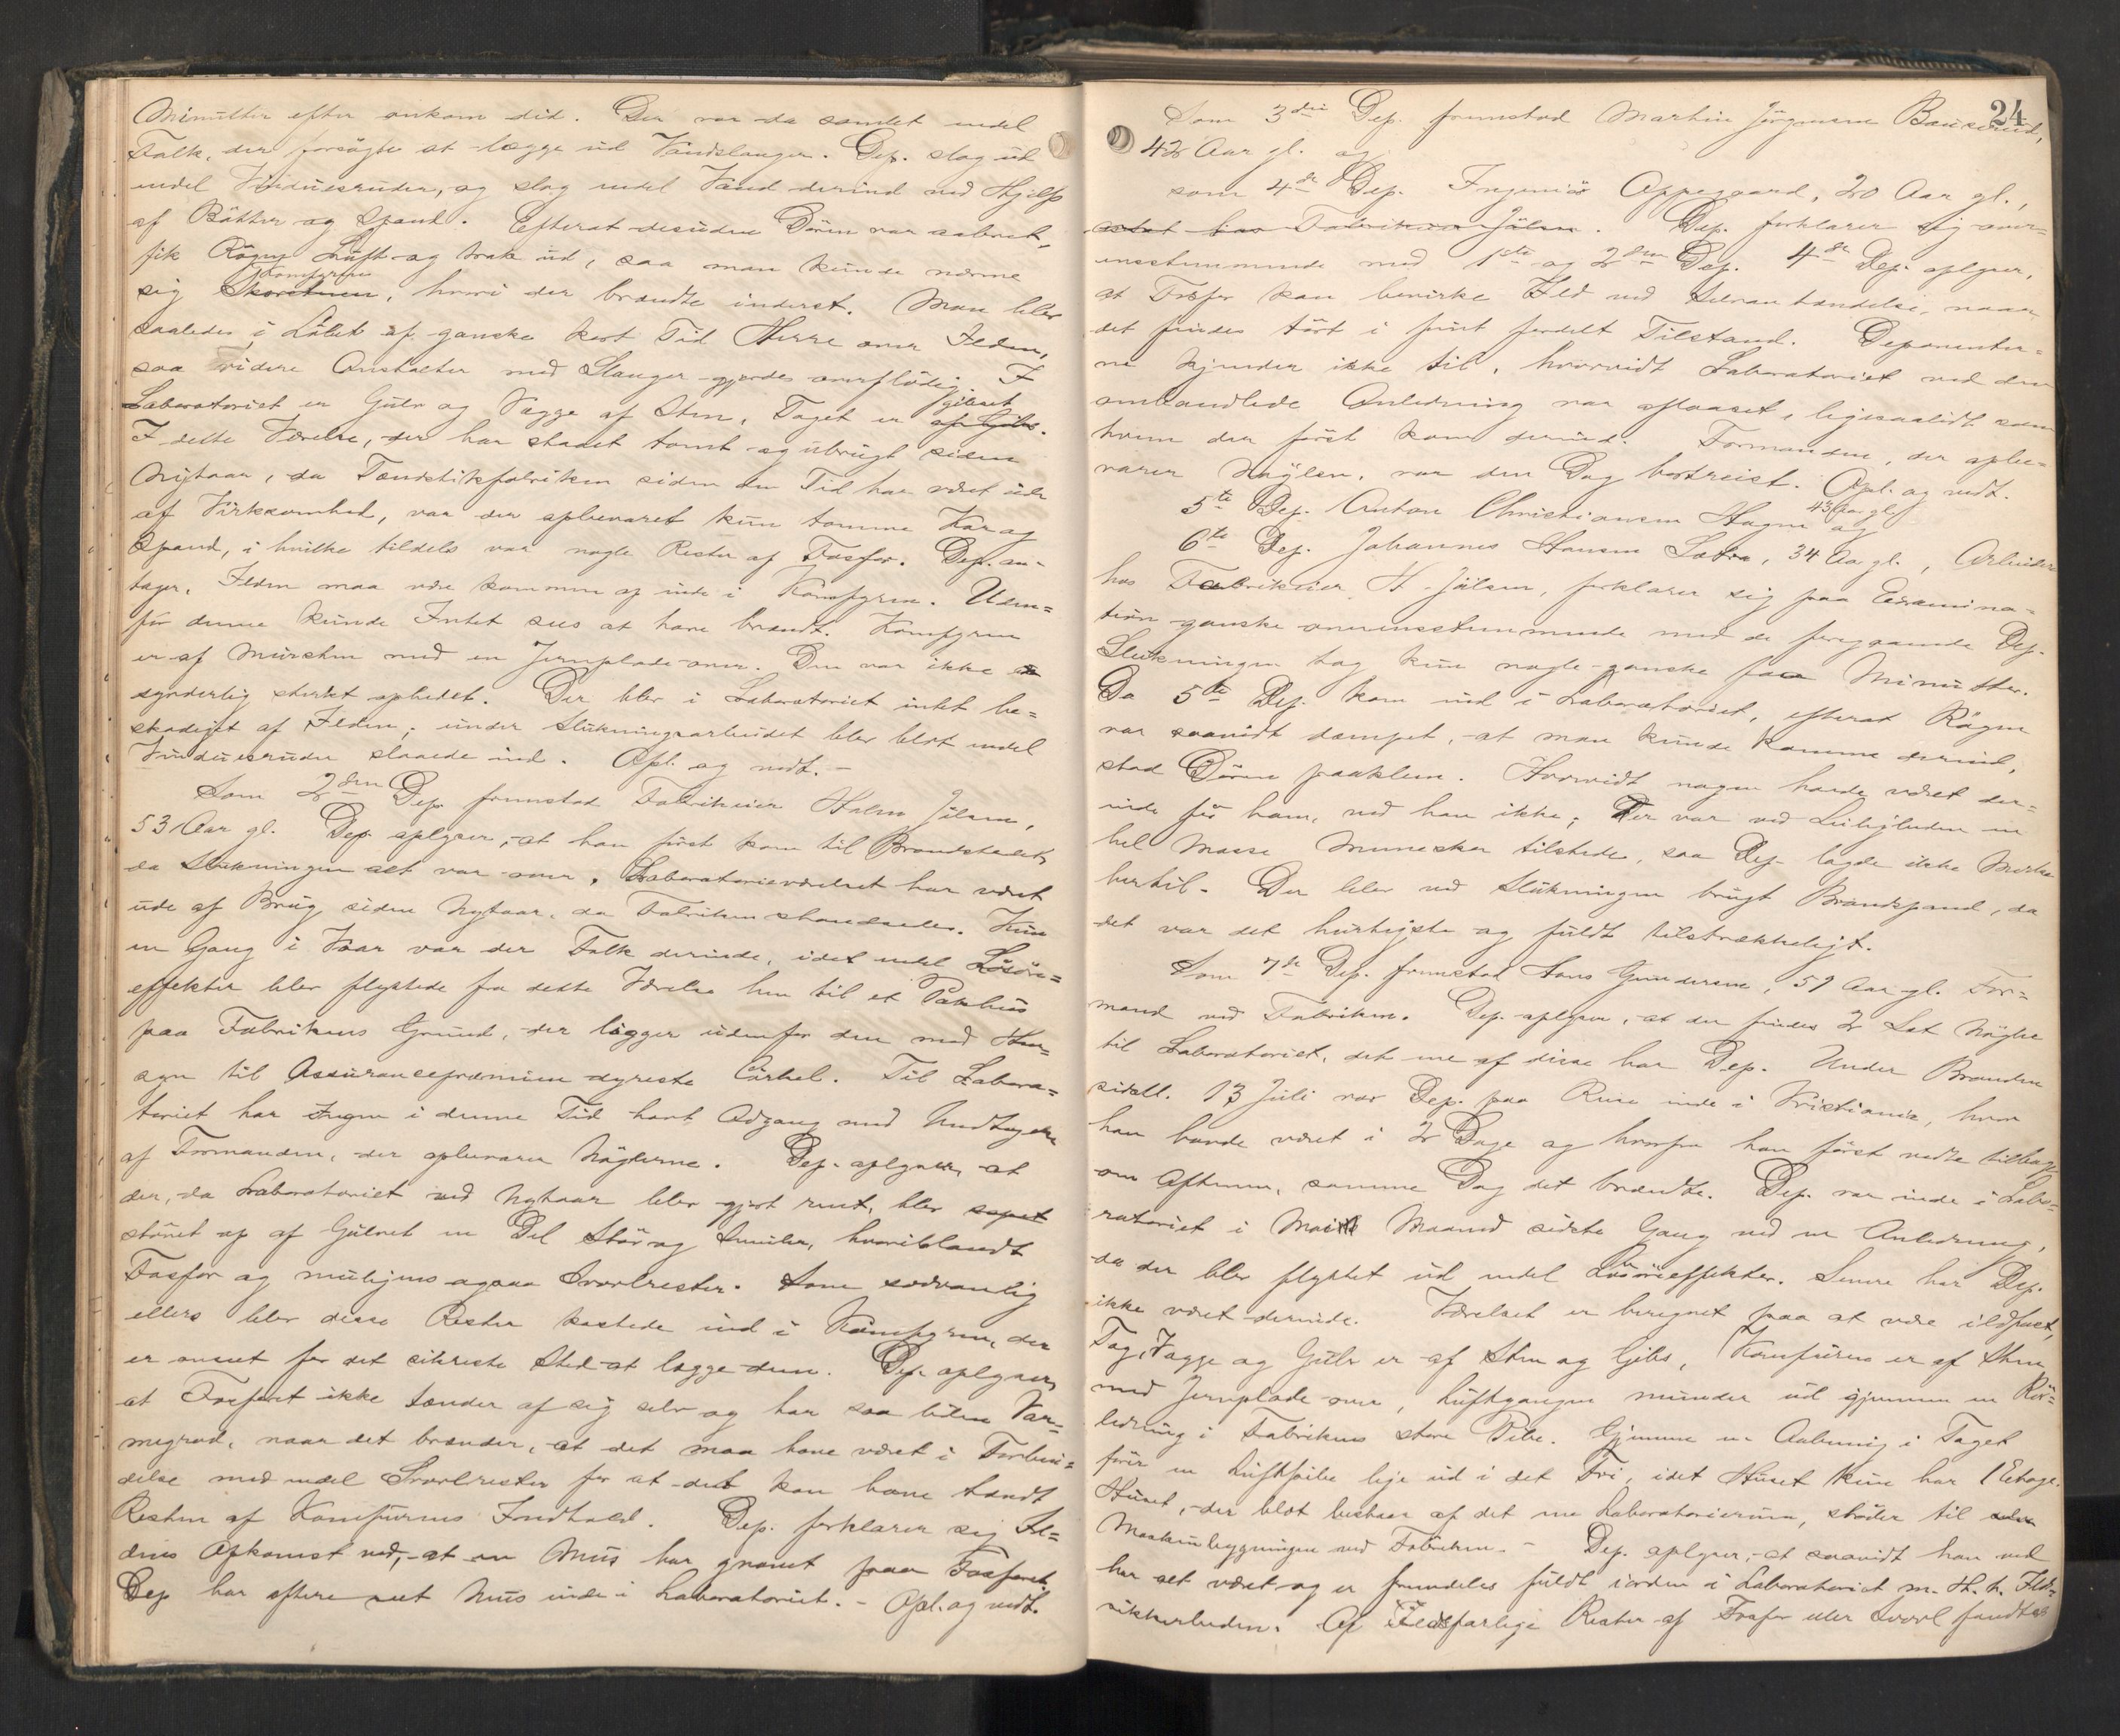 Minutter efter ankom did. Der var da samlet endel
Folk, der forsøgte at lægge ud Vandslanger. Dep. slog ud
endel Vinduesruder, og slog endel Vand derind ved Hjelp
af Bøtter og Spand. Efterat desuden Døren var aabnet,
fik Røgen Luft og trak ud, saa man kunde nærme
sig Skorstenen, Komfyren hvori der brændte inderst. Man blev
saaledes i Løbet af ganske kort Tid Herre over Ilden,
saa videre Anstalter med Slanger gjordes overflødig. I
Laboratoriet er Gulv og Vægge af Sten, Taget er af Gibs. gibset
I dette Værelse, der har staaet tomt og ubrugt siden
Nytaar, da Tændstikfabriken siden den Tid har været ude
af Virksomhed, var der opbevaret kun tomme Kar og
Spand, i hvilke tildels var nogle Rester af Fosfor. Dep. an-
tager, Ilden maa være kommen op inde i Komfyren. Uden=
for denne kunde Intet sees at have brændt. Komfyren
er af Mursten med en Jernplade over. Den var ikke
synderlig sterkt ophedet. Der blev i Laboratoriet intet be=
skadiget af Ilden; under Slukningsarbeidet blev blot endel
Vinduesruder slaaede ind. Opl. og vedt. -
Som 2den Dep. fremstod Fabrikeier Halvor Jølsen,
53 Aar gl. Dep. oplyser, at han først kom til Brandstedet,
da Slukningen alt var over. Laboratorieværelset har været
ude af Brug siden Nytaar, da Fabriken standsedes. Kun
en Gang i Vaar var der Folk derinde, idet endel Løsøre=
effekter blev flyttede fra dette Værelse hen til et Pakhus
paa Fabrikens Grund, der ligger udenfor den med Hen=
syn til Assurancepræmien dyreste Cirkel. Til Labora=
toriet har Ingen i denne Tid havt Adgang med Undtagelse
af Formanden, der opbevarer Nøglerne. Dep. oplyser, at
der, da Laboratoriet ved Nytaar blev gjort rent, blev sopet
 op af Gulvet en Del Støv og Smuler, hvoriblandt
Fosfor og muligens ogsaa Svovlrester. Som sædvanlig
ellers blev disse Rester kastede ind i Komfyren, der
er anseet for det sikreste Sted at lægge dem. Dep. oplyser,
at Fosforet ikke tænder af sig selv og har saa liden Var=
megrad, naar det brænder, at det maa have været i Forbin=
delse med endel Svovlrester for at det kan have tændt
Resten af Komfurens Indhold. Dep. forklarer sig Il=
dens Opkomst ved, at en Mus har gnavet paa Fosforet.
Dep har oftere seet Mus inde i Laboratoriet. - Opl. og vedt.
24
Som 3die Dep. fremstod Martin Jørgensen ,
42 Aar gl. og
som 4de Dep. Ingeniør Oppegaard, 20 Aar gl.,
 hos Fabrikeier Jølsen. Dep. forklarer sig over=
ensstemmende med 1ste og 2den Dep. 4de Dep. oplyser,
at Fosfor kan bevirke Ild ved Selvantændelse, naar
det findes tørt i fint fordelt Tilstand. Deponenter=
ne kjender ikke til, hvorvidt Laboratoriet ved den
omhandlede Anledning var aflaaset, ligesaalidt som
hvem der først kom derind. Formanden, der opbe=
varer Nøglen, var den Dag bortreist. Opl. og vedt.
5te Dep. Anton Christiansen Hagen 43 Aar gl. og
6te Dep. Johannes Hansen Sætra, 34 Aa gl., Arbeider
hos Fabrikeier H. Jølsen, forklarer sig paa Examina=
tion ganske overensstemmende med de foregaaende Dep.
Slukningen tog kun nogle ganske faa Minutter.
Da 5te Dep. kom ind i Laboratoriet, efterat Røgen
var saavidt dæmpet, at man kunde komme derind,
stod Døren paaklem. Hvorvidt nogen havde været der=
inde før ham, ved han ikke; Der var ved Leiligheden en
hel Masse Mennesker tilstede, saa Dep. lagde ikke Mærke
hertil. Der blev ved Slukningen brugt Brandspand, da
det var det hurtigste og fuldt tilstrækkeligt.
Som 7de Dep. fremstod Hans Gundersen, 59 Aar gl. For=
mand ved Fabriken. Dep. oplyser, at der findes 2 Sæt Nøgler
til Laboratoriet, det ene af disse har Dep. Under Branden
sidstl. 13 Juli var Dep. paa Reise inde i Kristiania, hvor
han havde været i 2 Dage og hvorfra han først vendte tilbage
om Aftenen, samme Dag det brændte. Dep. var inde i Labo=
ratoriet i Mai Maaned sidste Gang ved en Anledning,
da der blev flyttet ud endel Løsøreeffekter. Senere har Dep.
ikke været derinde. Værelset er beregnet paa at være ildfast,
Tag, Vægge og Gulv er af Sten og Gibs, Komfuren er af Sten
med Jernplade over, Luftgangen munder ud gjennem en Rør=
ledning i Fabrikens store Pibe. Gjennem en Aabning i Taget
fører en Luftpibe lige ud i det Fri, idet Huset kun har 1 Etage.
Huset, der blot bestaar af det ene Laboratorierum, støder til selve
Maskinbygningen ved Fabriken. - Dep. oplyser, at saavidt han ved
har alt været og er fremdeles fuldt iorden i Laboratoriet m. H. t. Ild=
sikkerheden. Af Ildsfarlige Rester af Fosfor eller Svovl fandtes